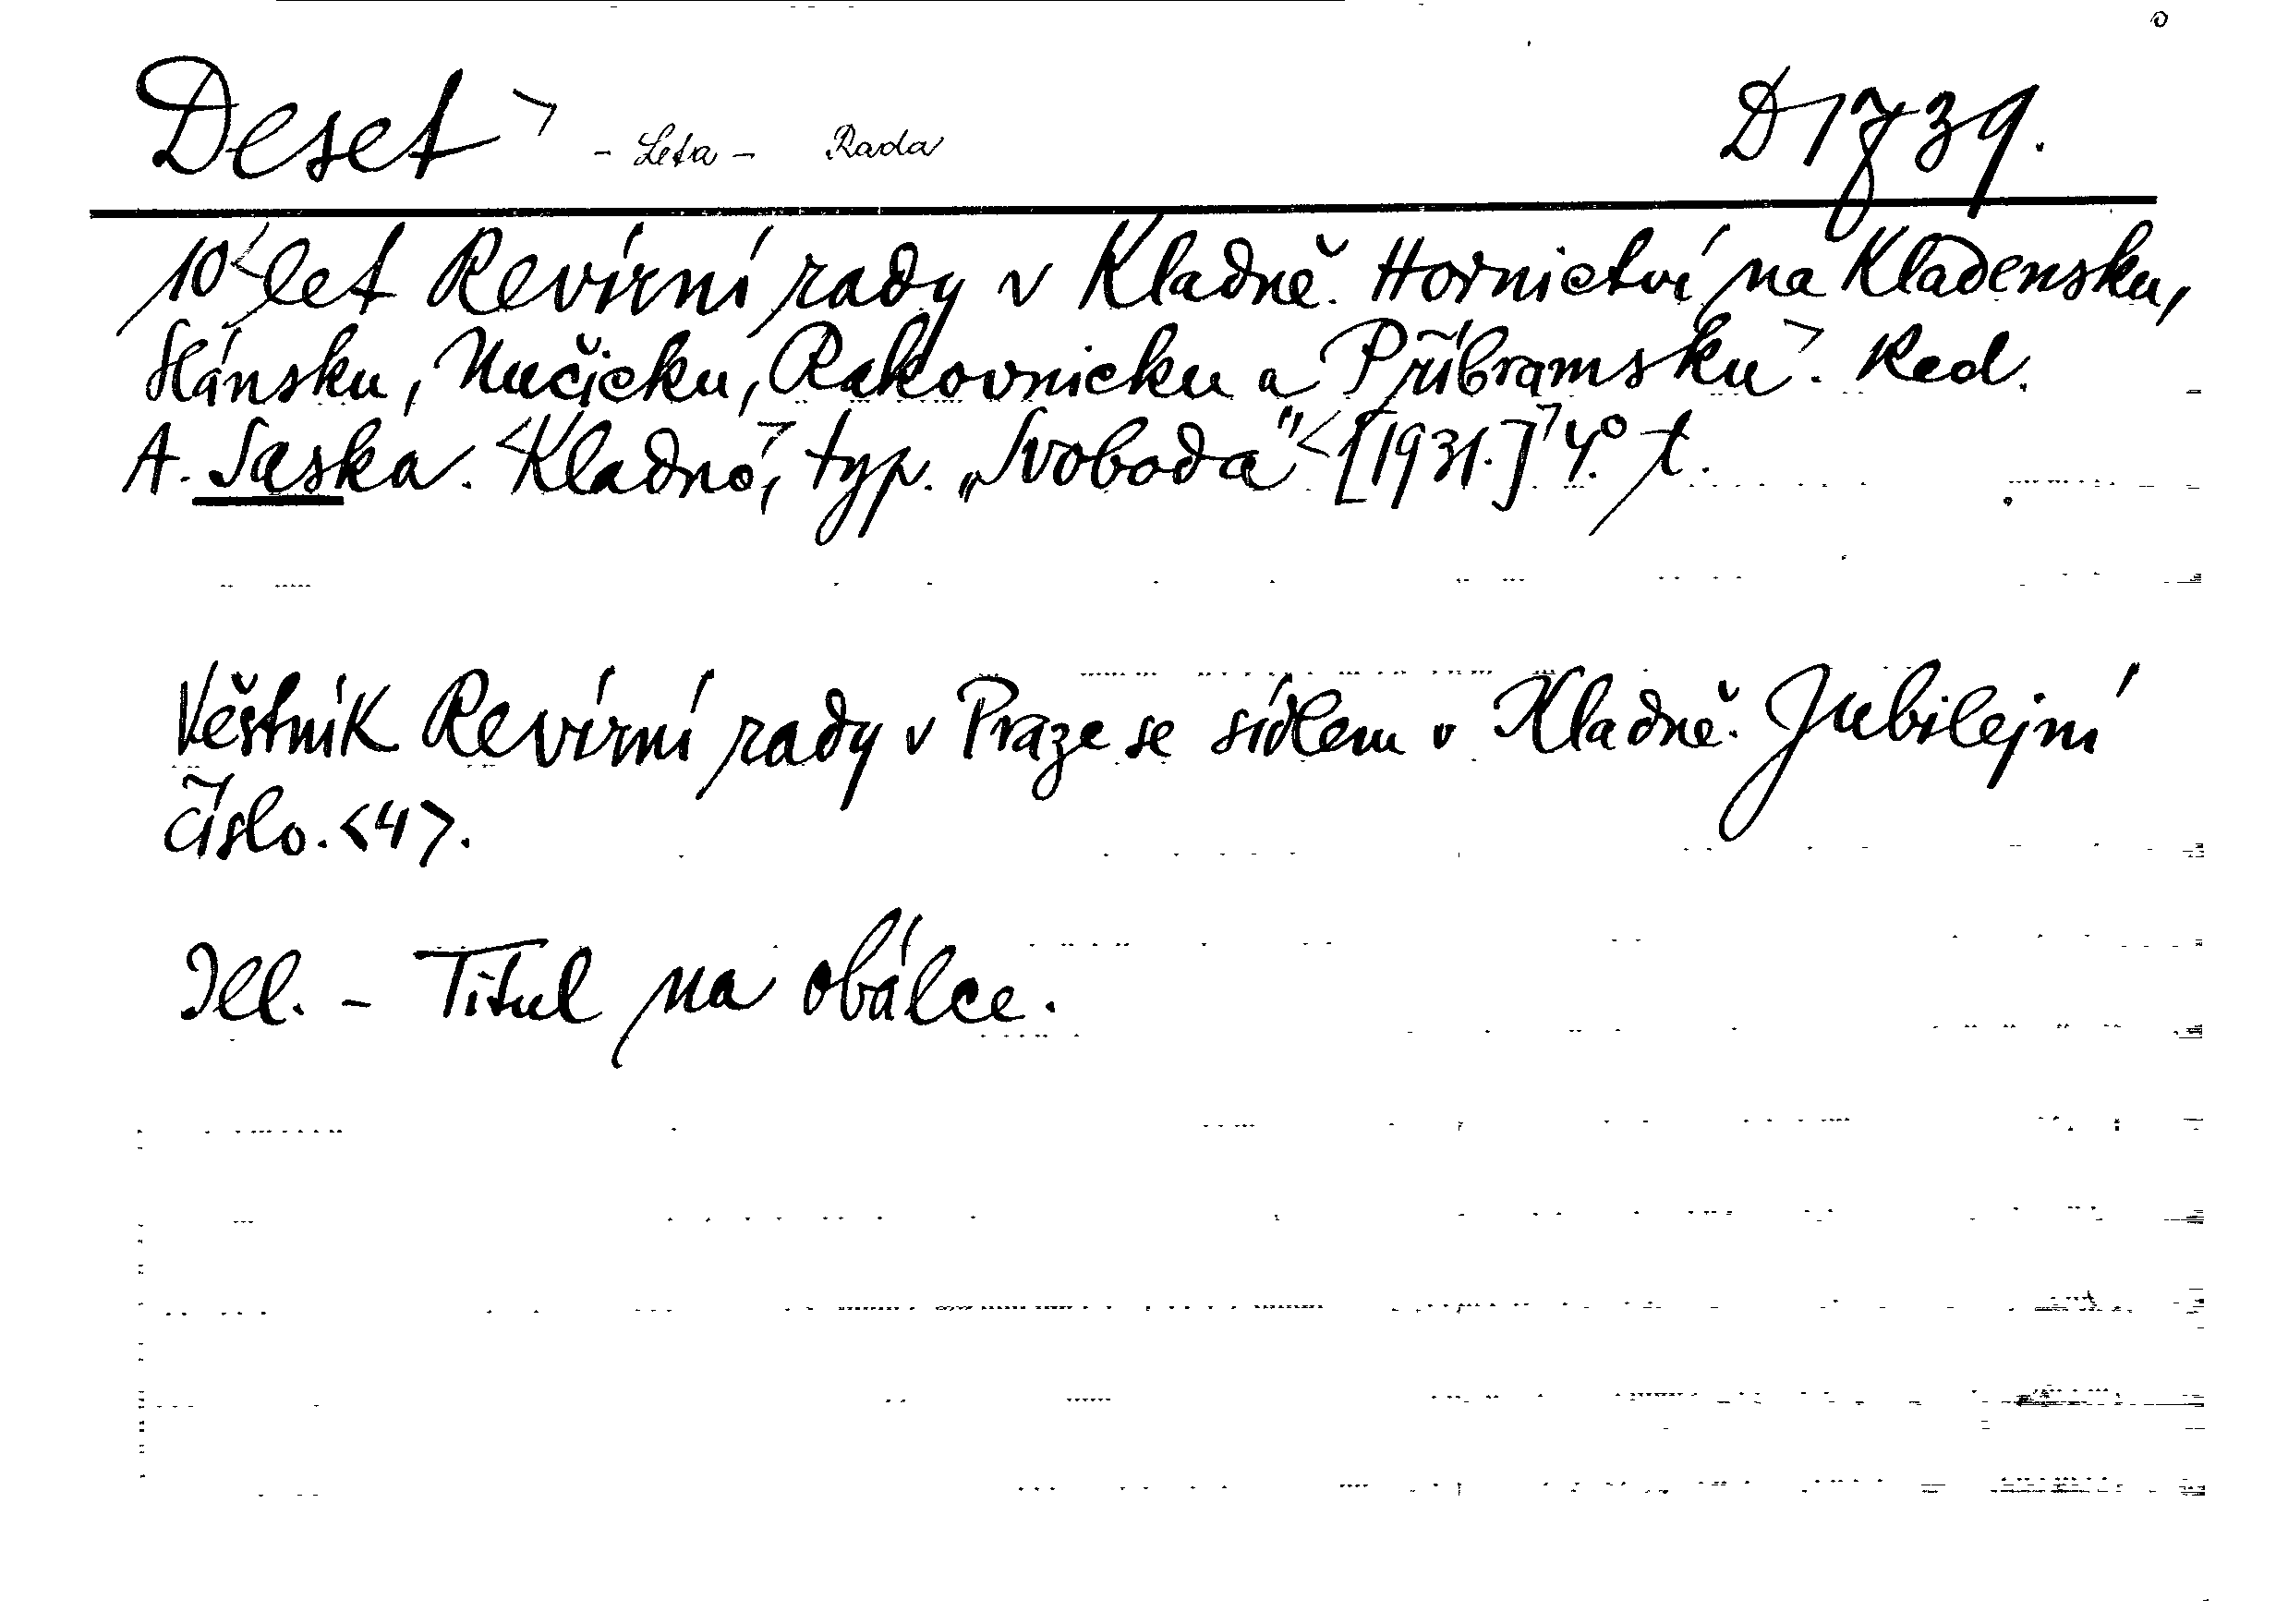 Deset > - Leta - Rada D 1739.
10 < let Revírní rady v Kladně. Hornictví na Kladensku,
Slánsku, Nučicku, Rakovnicku a Příbramsku >. Red.
A. Saska. < Kladno >, typ. „Svoboda" < [1931.] > 4.° t.
Věstník Revírní rady v Praze se sídlem v Kladně. Jubilejní
číslo. <4>.
Ill. - Titul na obálce.